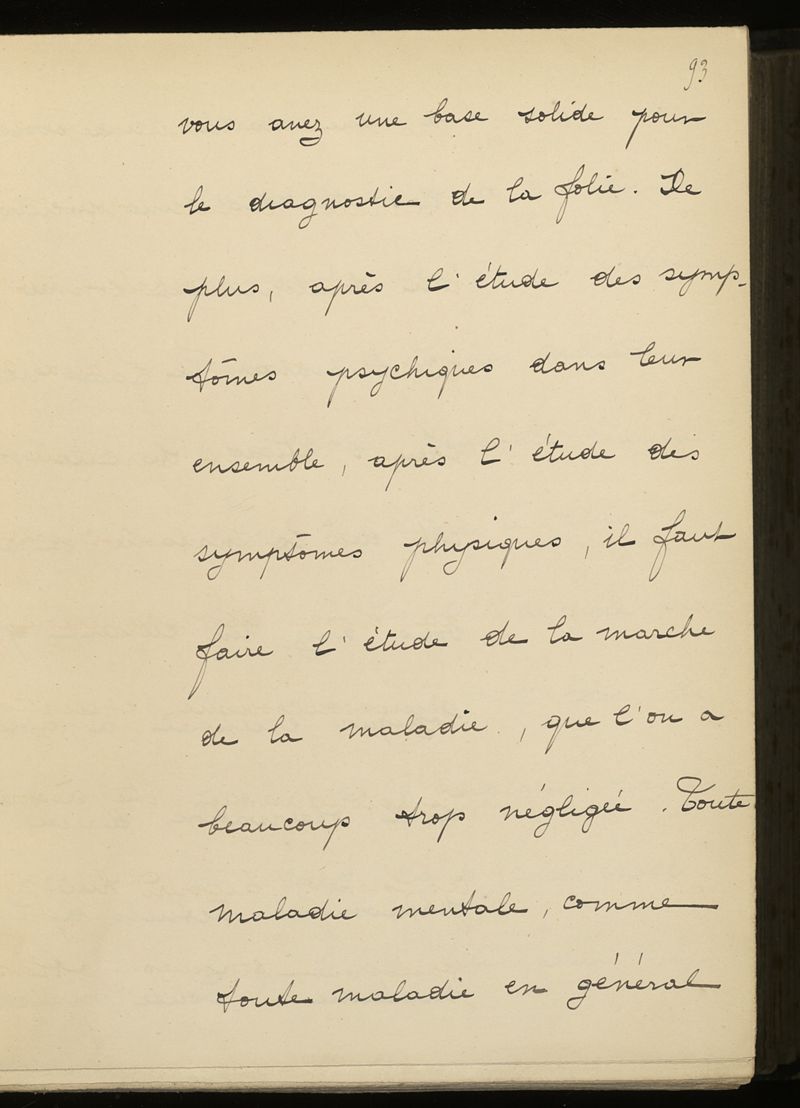 93
vous avez une base solide pour
le diagnostic de la folie. De
plus, après l'étude des symp-
tômes psychiques dans leur
ensemble, après l'étude des
symptômes physiques, il faut
faire l'étude de la marche
de la maladie, que l'on a
beaucoup trop négligée. Toute
maladie mentale, comme
toute maladie en général